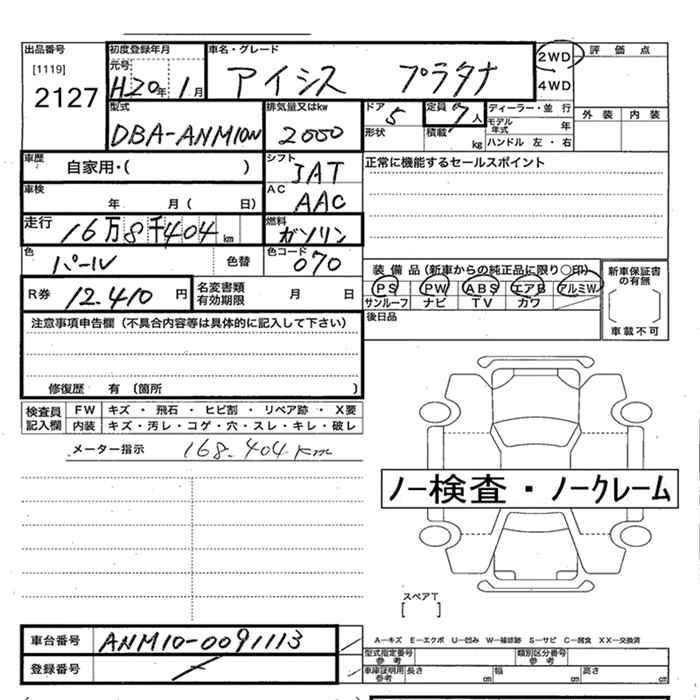 出品番号 初度登録年月 車名・グレード 評価点
[1119] 元号 2WD
2127 H20年 1月 アイシス プラタナ 4WD
外装 内装
型式 排気量又はkw ドア 定員 ディーラー・並行
DBA-ANM10W 2000 5 7人 モデル年式 年
形状 積載 kg ハンドル 左・右
車歴 自家用・( ) シフト IAT 正常に機能するセールスポイント
車検 年 月( 日) AC AAC
走行 16万8千404km 燃料 ガソリン
色 パール 色替 色コード 070
装備品(新車からの純正品に限り○印) 新車保証書の有無
R券 12.410円 名変書類有効期限 月 日
PS PW ABS エアB アルミW
サンルーフ ナビ TV カワ
車載不可
注意事項申告欄(不具合内容等は具体的に記入して下さい) 後日品
修復歴 有 (箇所 )
検査員記入欄 FW キズ・飛石・ヒビ割・リペア跡・X要
内装 キズ・汚レ・コゲ・穴・スレ・キレ・破レ
メーター指示 168.404km
ノー検査・ノークレーム
スペアT
[ ]
車台番号 ANM10-0091113
A-キズ E-エクボ U-凹み W-補修跡 S-サビ C-腐食 XX-交換済
型式指定番号 参考 類別区分番号 参考
登録番号 車庫証明用 参考 長さ cm 幅 cm 高さ cm